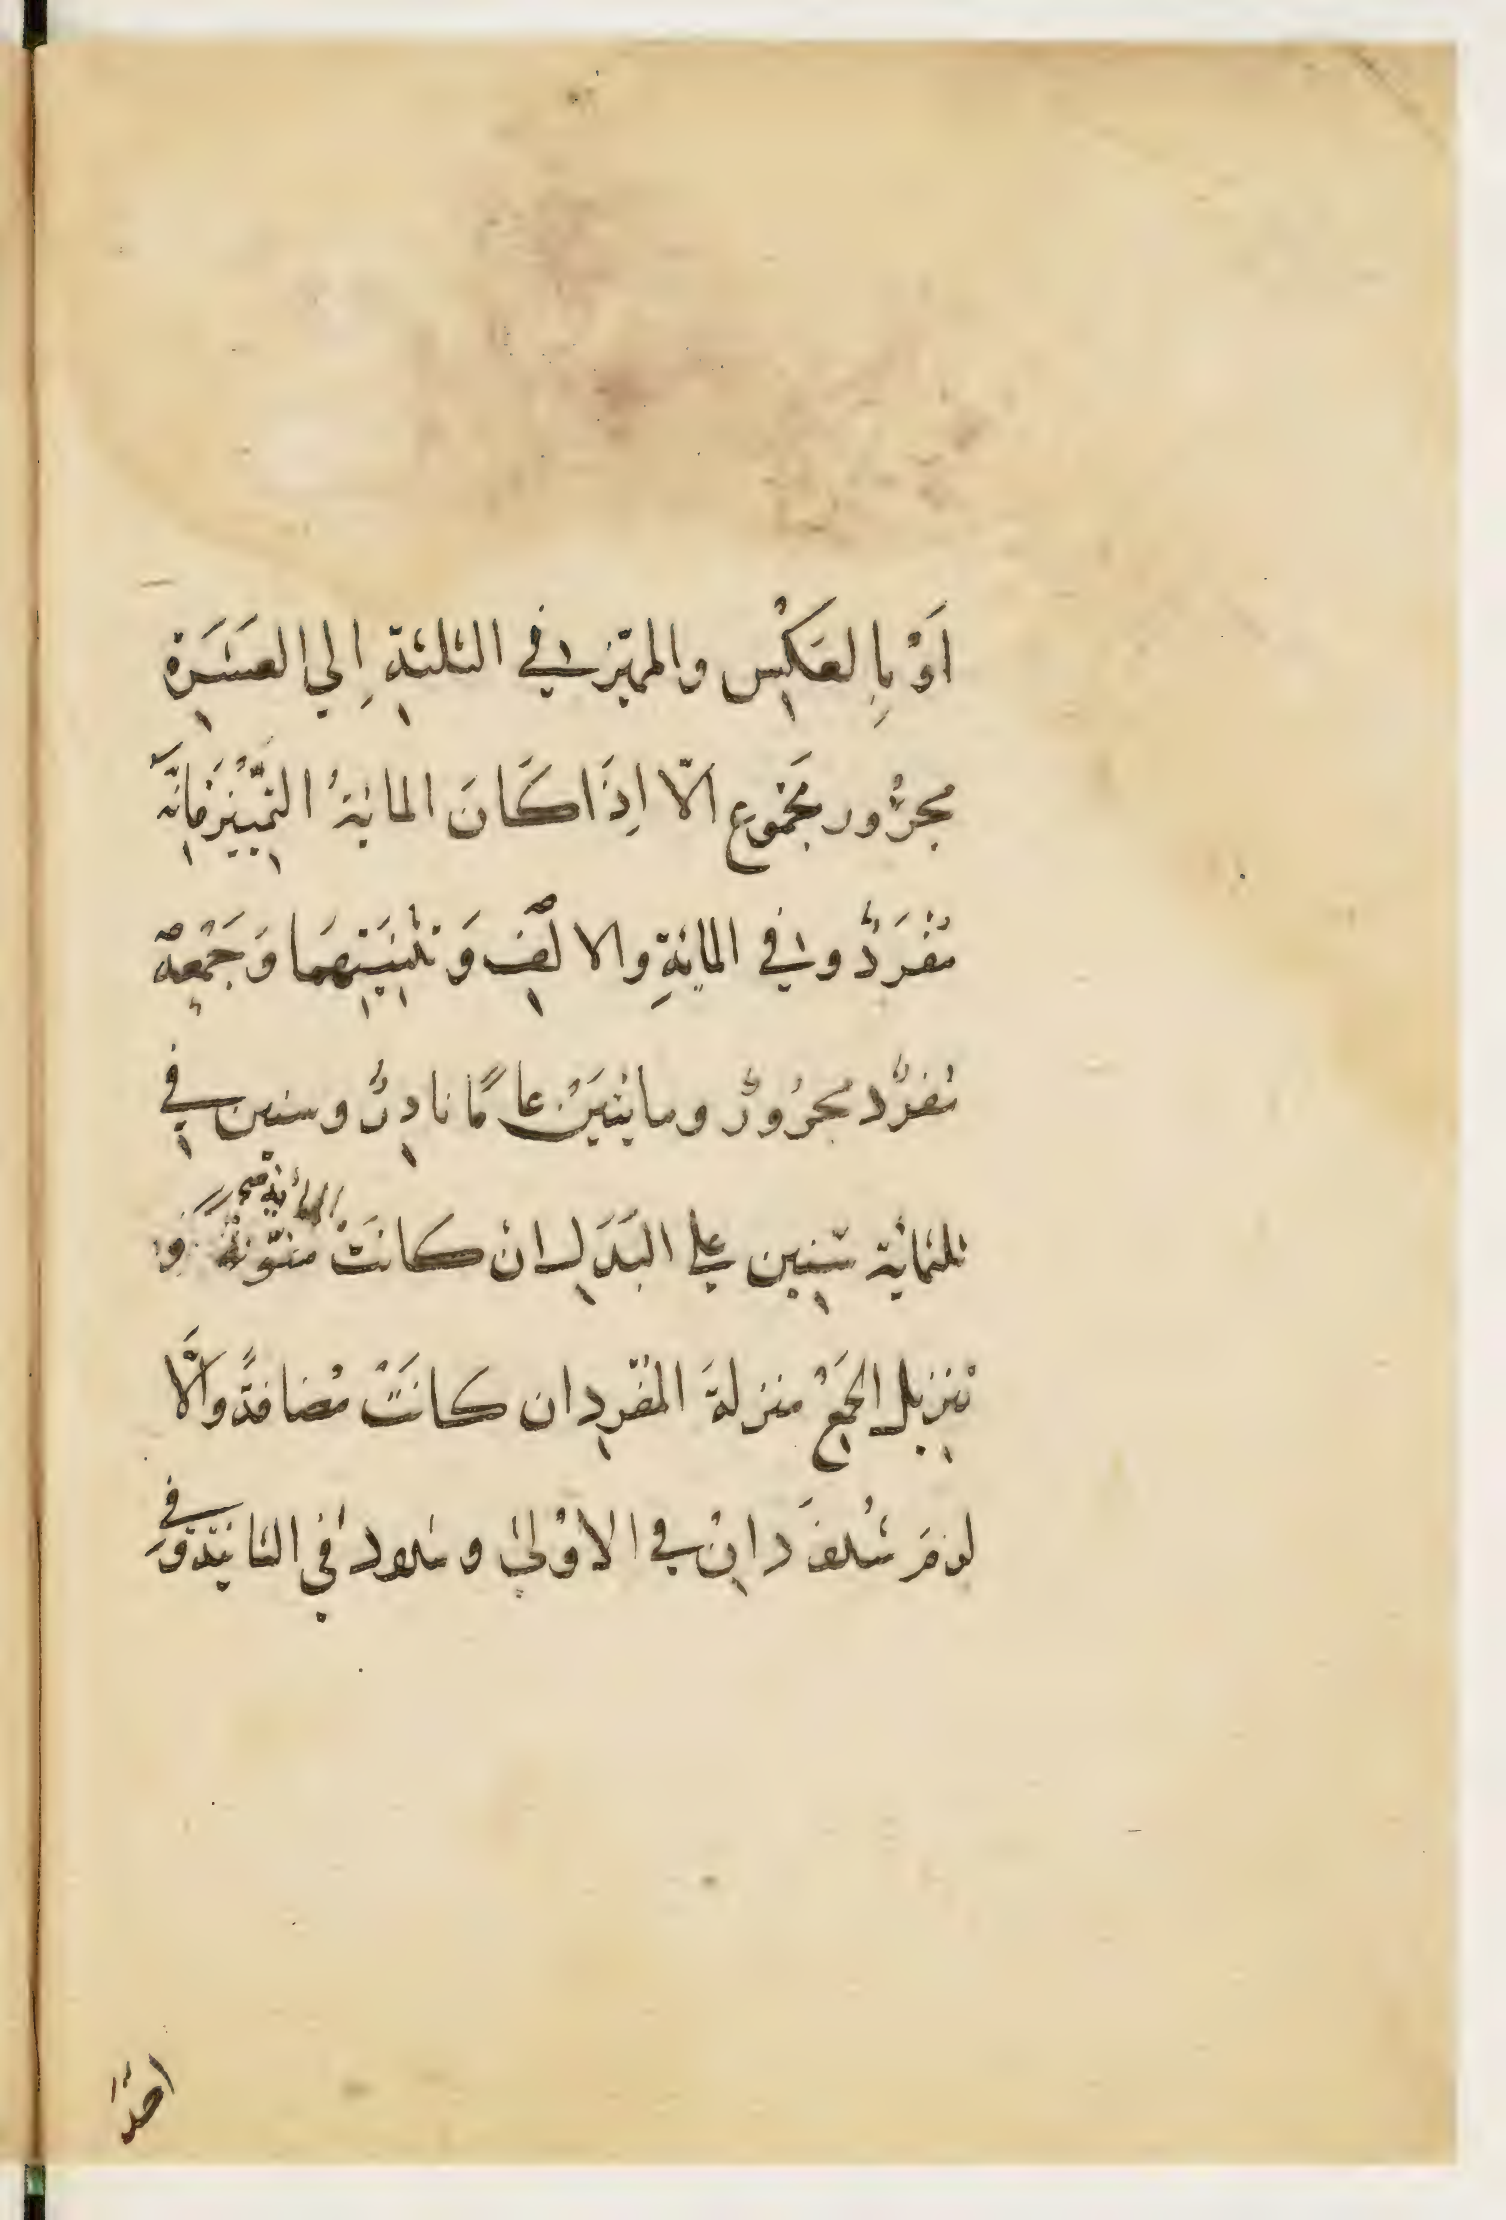 اَوْ بِالعَكْسِ والمميّز في الثلثةِ اِلي العَشَرَةِ
مجرُّور مَجْموع الّا اِذَا كَانَ المائةُ التَّمْيِيْزَ فَاِنَّهٗ
مُفْرَدٌ وفي المائةِ والالْفِ وَتثنيَتِهمَا وَجَمْعِهٖ
مُفْرَدٌ مجرُورٌ ومايتَيْن عامًا نادِرٌ وسنين في
ثلثمائة سِنِين علي البَدَلِ ان كانَتْ المائة منوّنةً وَ
تنزيل الجَمْعِ منزلةَ المُفْرَدِ ان كانَتْ مُضافةً وَالَّا
لزمَ شُذوذانِ في الاوْلىٰ وشذوذ في الثانيَة وَفي
احد